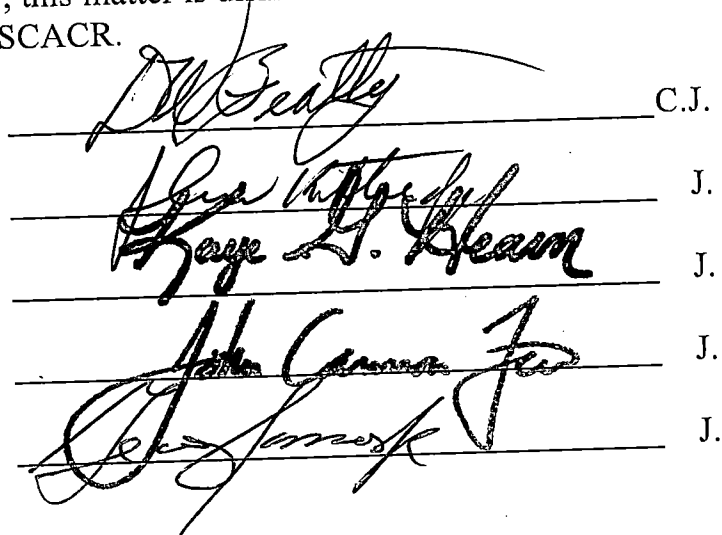 , this matter is
SCACR.
DW Beatty C.J.
J.
Kaye G. Hearn J.
John Cannon Few J.
J.